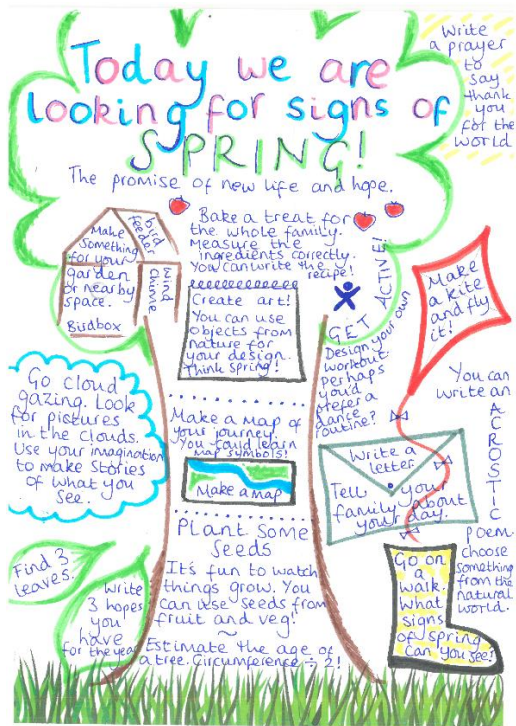 Today we are
looking for signs of
SPRING!
The promise of new life and hope.
Write
a prayer
to
say
thank
you
for the
world
Make
something
for your
garden
or nearby
space.
Birdbox
bird
feeder
wind
chime
Bake a treat for
the whole family.
Measure the
ingredients correctly.
You can write the
recipe!
Create art!
You can use
objects from
nature for
your design.
Think spring!
GET ACTIVE!
Design your own
workout,
perhaps
you'd
prefer a
dance
routine?
Make
a kite
and fly
it!
Go cloud
gazing. Look
for pictures
in the clouds.
Use your imagination
to make stories
of what you
see.
Make a map of
your journey.
You could learn
map symbols!
Make a map
You can
write an
ACROSTIC
poem-
choose
something
from the
natural
world.
Write a
letter.
Tell your
family about
your day.
Plant some
seeds
It's fun to watch
things grow. You
can use seeds from
fruit and veg!
~
Estimate the age of
a tree. Circumference ÷ 2!
Find 3
leaves.
Write
3 hopes
you
have
for the year
Go on
a
walk.
What
signs
of spring
can you see?